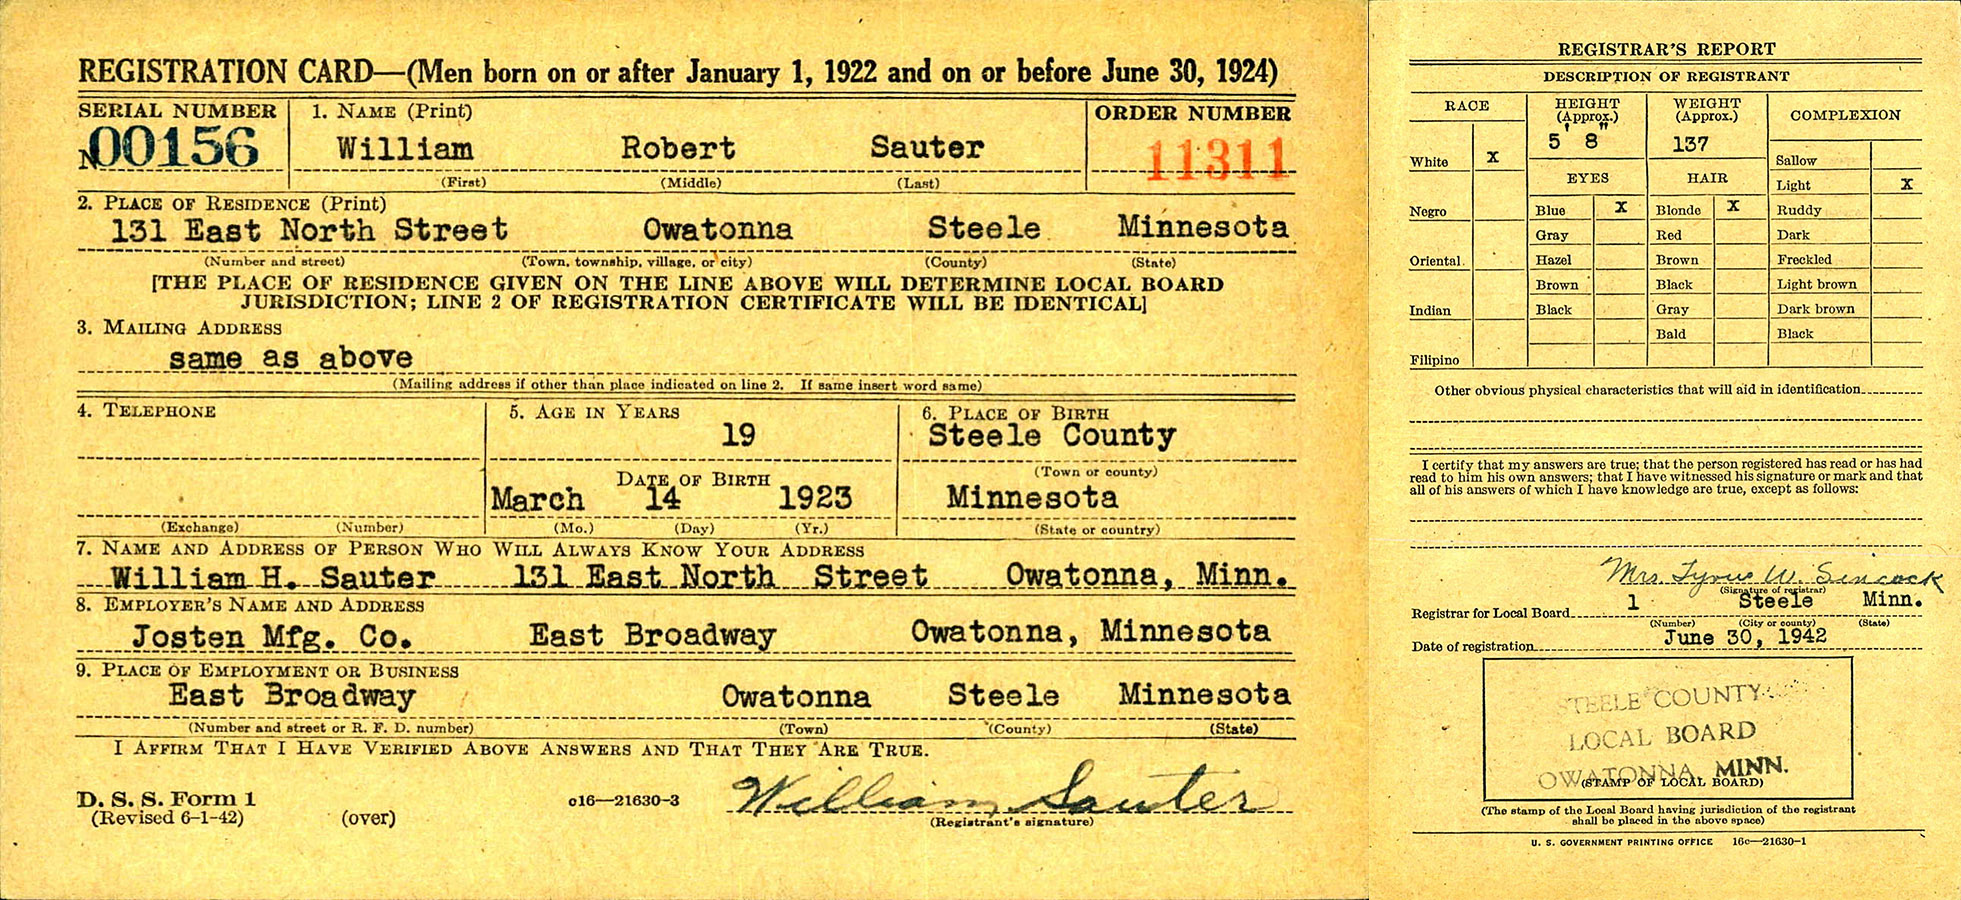 REGISTRATION CARD—(Men born on or after January 1, 1922 and on or before June 30, 1924)
SERIAL NUMBER 1. NAME (Print) ORDER NUMBER
N00156 William Robert Sauter 11311
(First) (Middle) (Last)
2. PLACE OF RESIDENCE (Print)
131 East North Street Owatonna Steele Minnesota
(Number and street) (Town, township, village, or city) (County) (State)
[THE PLACE OF RESIDENCE GIVEN ON THE LINE ABOVE WILL DETERMINE LOCAL BOARD
JURISDICTION; LINE 2 OF REGISTRATION CERTIFICATE WILL BE IDENTICAL]
3. MAILING ADDRESS
same as above
(Mailing address if other than place indicated on line 2. If same insert word same)
4. TELEPHONE 5. AGE IN YEARS 6. PLACE OF BIRTH
19 Steele County
DATE OF BIRTH (Town or county)
March 14 1923 Minnesota
(Exchange) (Number) (Mo.) (Day) (Yr.) (State or country)
7. NAME AND ADDRESS OF PERSON WHO WILL ALWAYS KNOW YOUR ADDRESS
William H. Sauter 131 East North Street Owatonna, Minn.
8. EMPLOYER'S NAME AND ADDRESS
Josten Mfg. Co. East Broadway Owatonna, Minnesota
9. PLACE OF EMPLOYMENT OR BUSINESS
East Broadway Owatonna Steele Minnesota
(Number and street or R. F. D. number) (Town) (County) (State)
I AFFIRM THAT I HAVE VERIFIED ABOVE ANSWERS AND THAT THEY ARE TRUE.
D. S. S. Form 1 c16—21630-3 William Sauter
(Revised 6-1-42) (over) (Registrant's signature)
REGISTRAR'S REPORT
DESCRIPTION OF REGISTRANT
RACE HEIGHT (Approx.) WEIGHT (Approx.) COMPLEXION
5' 8" 137
White X Sallow
EYES HAIR Light X
Negro Blue X Blonde X Ruddy
Gray Red Dark
Oriental Hazel Brown Freckled
Brown Black Light brown
Indian Black Gray Dark brown
Bald Black
Filipino
Other obvious physical characteristics that will aid in identification
I certify that my answers are true; that the person registered has read or has had
read to him his own answers; that I have witnessed his signature or mark and that
all of his answers of which I have knowledge are true, except as follows:
Mrs. W.
(Signature of registrar)
Registrar for Local Board 1 Steele Minn.
(Number) (City or county) (State)
Date of registration June 30, 1942
STEELE COUNTY
LOCAL BOARD
OWATONNA MINN.
(STAMP OF LOCAL BOARD)
(The stamp of the Local Board having jurisdiction of the registrant
shall be placed in the above space)
U. S. GOVERNMENT PRINTING OFFICE 16c—21630-1